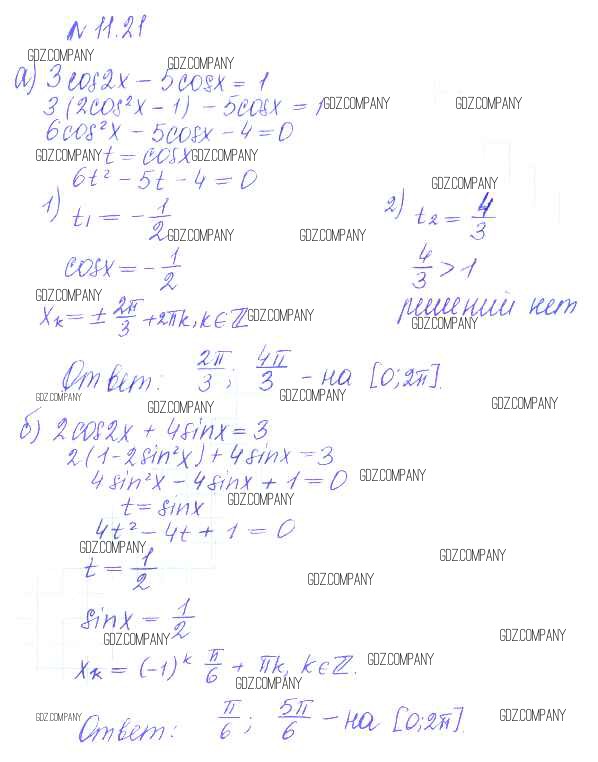 № 11.21
GDZ.COMPANY GDZ.COMPANY
а) 3cos2x − 5cosx = 1
3(2cos²x − 1) − 5cosx = 1 GDZ.COMPANY GDZ.COMPANY
6cos²x − 5cosx − 4 = 0
GDZ.COMPANY t = cosx GDZ.COMPANY
6t² − 5t − 4 = 0
GDZ.COMPANY
1) t₁ = −1/2 2) t₂ = 4/3
GDZ.COMPANY GDZ.COMPANY
cosx = −1/2 4/3 > 1
GDZ.COMPANY
xₖ = ± 2π/3 + 2πk, k∈ℤ GDZ.COMPANY решений нет
GDZ.COMPANY
Ответ: 2π/3; 4π/3 − на [0; 2π].
GDZ.COMPANY GDZ.COMPANY GDZ.COMPANY GDZ.COMPANY
б) 2cos2x + 4sinx = 3
2(1−2sin²x) + 4sinx = 3
4sin²x − 4sinx + 1 = 0 GDZ.COMPANY
t = sinx GDZ.COMPANY
4t² − 4t + 1 = 0
GDZ.COMPANY GDZ.COMPANY
t = 1/2
GDZ.COMPANY
sinx = 1/2
GDZ.COMPANY GDZ.COMPANY
xₖ = (−1)ᵏ π/6 + πk, k∈ℤ. GDZ.COMPANY
GDZ.COMPANY
GDZ.COMPANY Ответ: π/6; 5π/6 − на [0; 2π]. GDZ.COMPANY